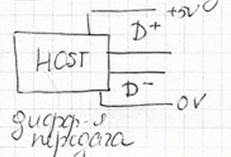 +5V
D+
HOST
D-
0V
дифф-я
передача